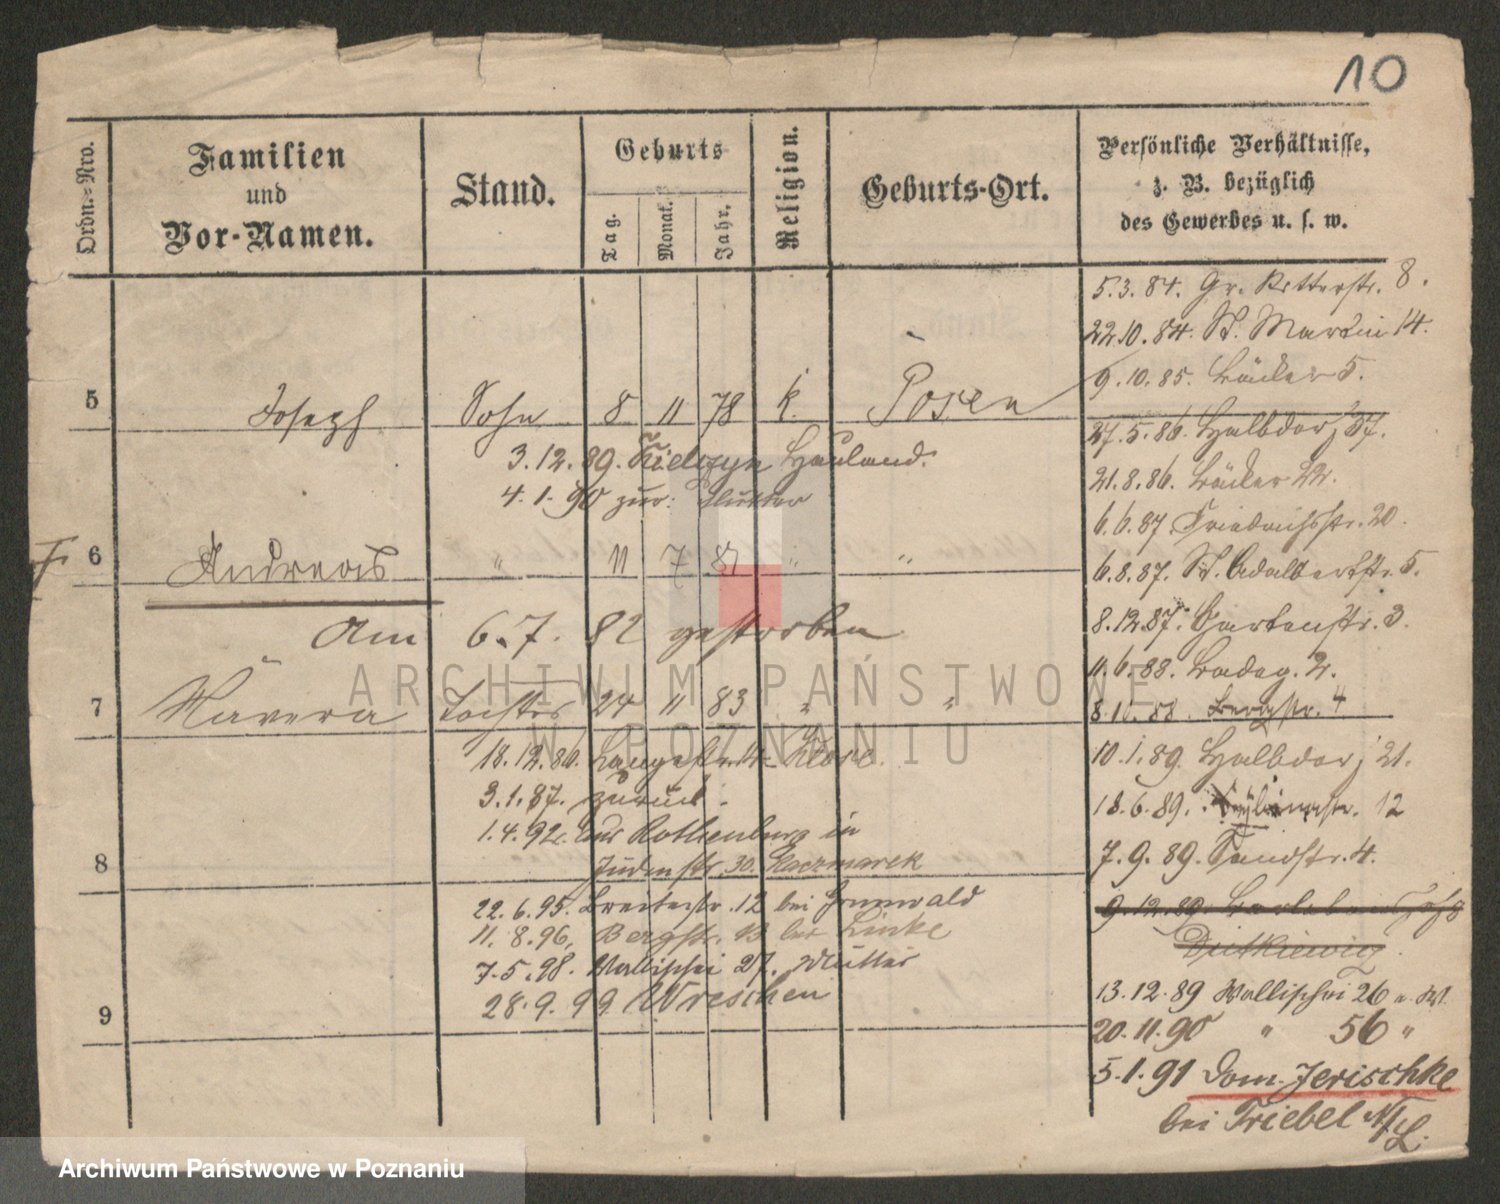 10
Ordn.-Nro.
Familien
und
Vor-Namen.
Stand.
Geburts
Tag.
Monat.
Jahr.
Religion.
Geburts-Ort.
Persönliche Verhältnisse,
z. B. bezüglich
des Gewerbes u. s. w.
5.3.84. Gr. Ritterstr. 8.
22.10.84. St. Martin 14.
9.10.85. Bäcker 5.
5 Joseph Sohn 8 11 78 k. Posen
27.5.86. Halbdorf 37.
3.12.89. Hauland.
21.8.86. Bäcker 22.
4.1.90 zur: Mutter
6.6.87. Friedrichsstr. 20.
6 Andreas " 11 7 " "
6.8.87. St. Adalbertstr. 5.
Am 6.7. 82 gestorben
8.12.87. Gartenstr. 3.
11.6.88. 2.
7 Tochter 24 11 83 " "
8.10.88. Bergstr. 4
18.12.86. Langestr.
10.1.89. Halbdorf 21.
3.1.87. zurück.
18.6.89. 12
1.4.92. aus Rothenburg in
Judenstr. 30. Kaczmarek
7.9.89. Sandstr. 4.
8
22.6.95. Breitestr. 12 bei Grunwald
9.12.89.
11.8.96. Bergstr. 13 bei Linke
Dutkiewicz
7.5.98. Wallischei 27. Mutter
28.9.99 Wreschen
13.12.89 Wallischei 26
9
20.11.90 " 56 "
5.1.91 Dom. Jerischke
bei Triebel N/L.
ARCHIWUM PAŃSTWOWE
W POZNANIU
Archiwum Państwowe w Poznaniu